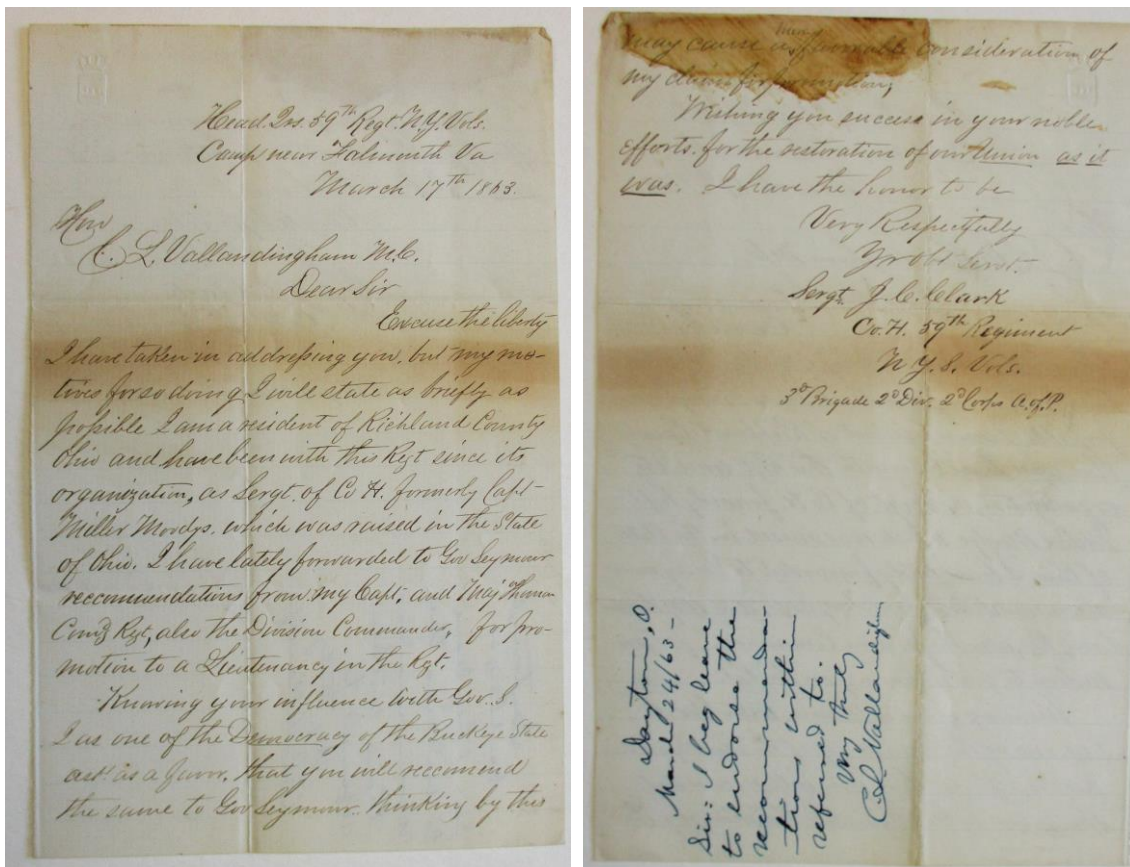 Head Qrs. 59th Regt. N.Y. Vols.
Camp near Falmouth Va
March 17th 1863.
Hon
C. L. Vallandingham M.C.
Dear Sir
Excuse the liberty
I have taken in addressing you, but my mo-
tives for so doing I will state as briefly as
possible I am a resident of Richland County
Ohio and have been with this Regt since its
organization, as Sergt. of Co H. formerly Capt
Miller Moodys. which was raised in the State
of Ohio. I have lately forwarded to Gov Seymour
reccommendations from my Capt. and Maj
Comdg Rgt, also the Division Commander, for pro-
motion to a Lieutenancy in the Rgt.
Knowing your influence with Gov. S.
I as one of the Democracy of the Buckeye State
ask as a favor, that you will reccomend
the same to Gov Seymour. thinking by this
may cause a favorable consideration of
my claim for promotion,
Wishing you success in your noble
efforts. for the restoration of our Union as it
was. I have the honor to be
Very Respectfully
Yr obt Servt.
Sergt. J. C. Clark
Co. H. 59th Regiment
N.Y.S. Vols.
3d Brigade 2d Div. 2d Corps A.of.P.
Dayton, O.
March 24/63-
Sir: I beg leave
to endorse the
recommenda-
tions within
referred to.
Very truly
C.L. Vallandigham